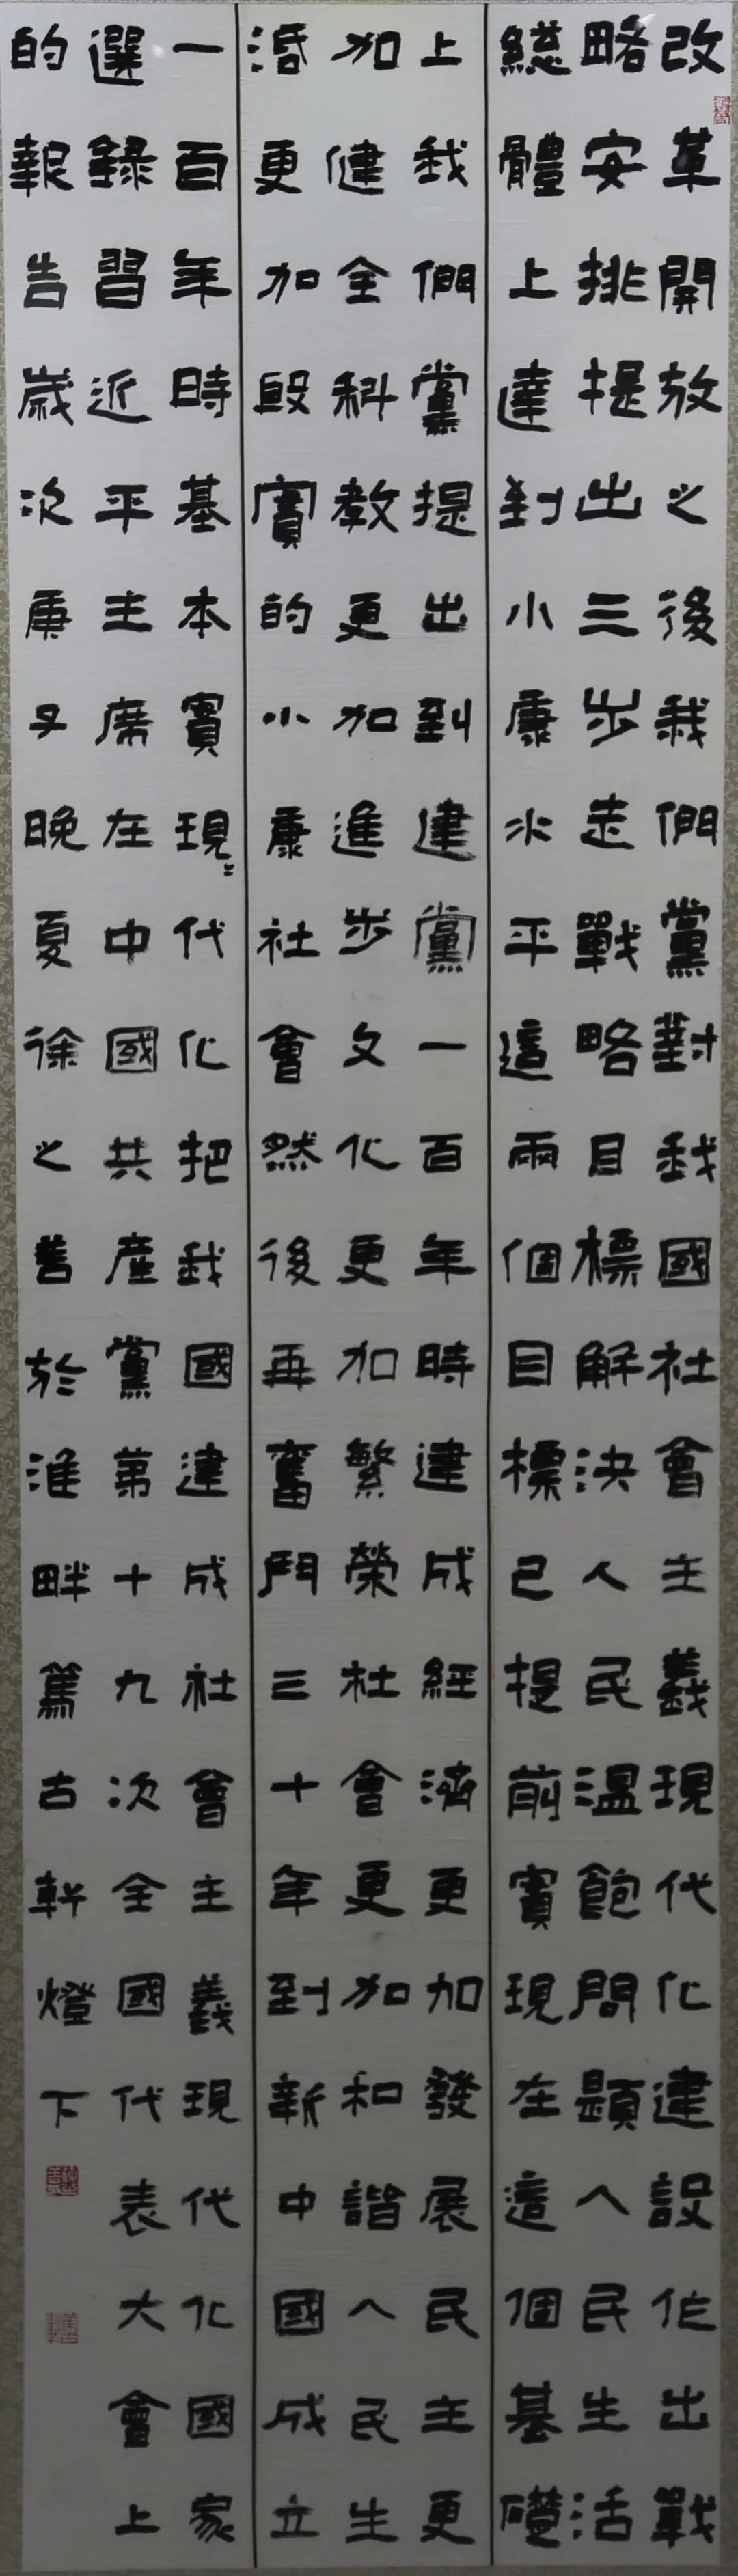 改革開放之後我們黨對我國社會主義現代化建設作出戰
略安排提出三步走戰略目標解決人民溫飽問題人民生活
總體上達到小康水平這兩個目標已提前實現在這個基礎
上我們黨提出到建黨一百年時建成經濟更加發展民主更
加健全科教更加進步文化更加繁榮社會更加和諧人民生
活更加殷實的小康社會然後再奮鬥三十年到新中國成立
一百年時基本實現〻代化把我國建成社會主義現代化國家
選錄習近平主席在中國共產黨第十九次全國代表大會上
的報告歲次庚子晚夏徐之善於淮畔篤古軒燈下